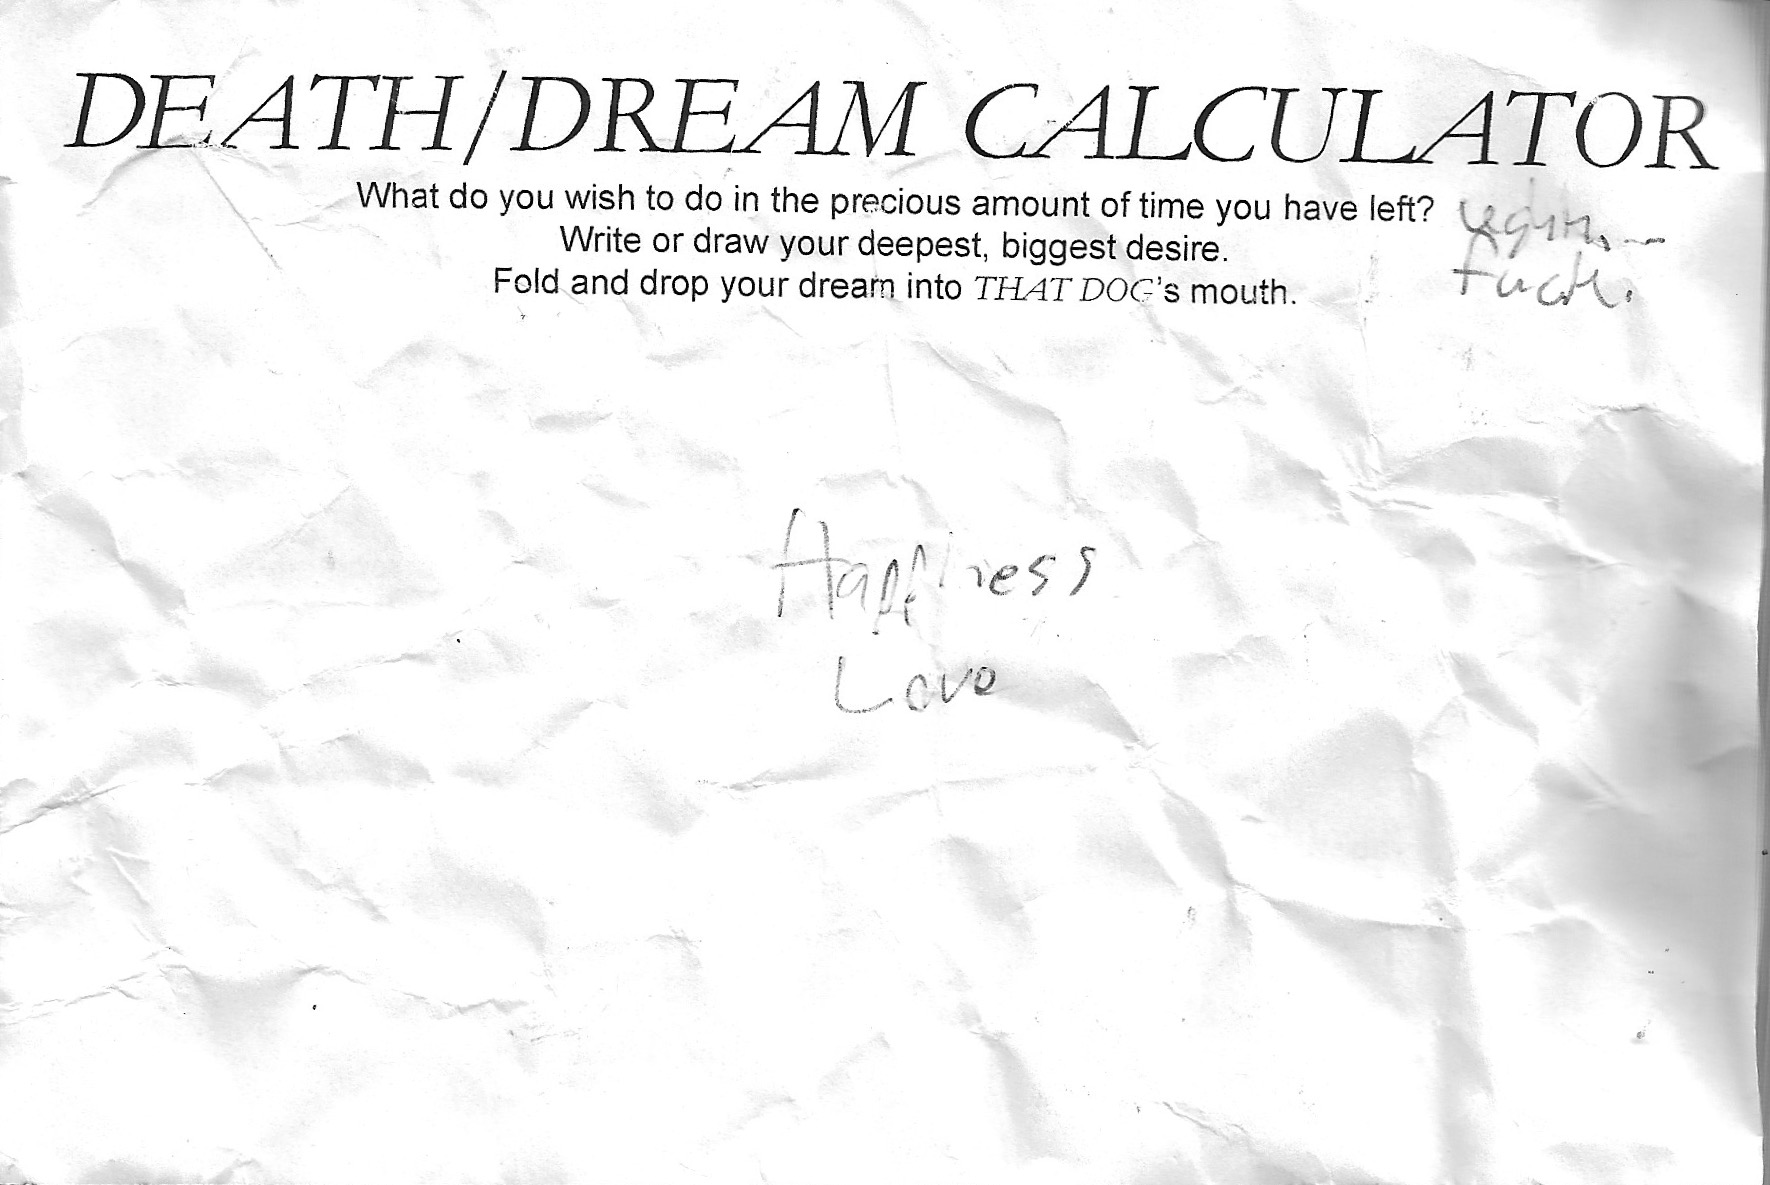 DEATH/DREAM CALCULATOR
What do you wish to do in the precious amount of time you have left?
Write or draw your deepest, biggest desire.
Fold and drop your dream into THAT DOG's mouth.
Happiness
Love